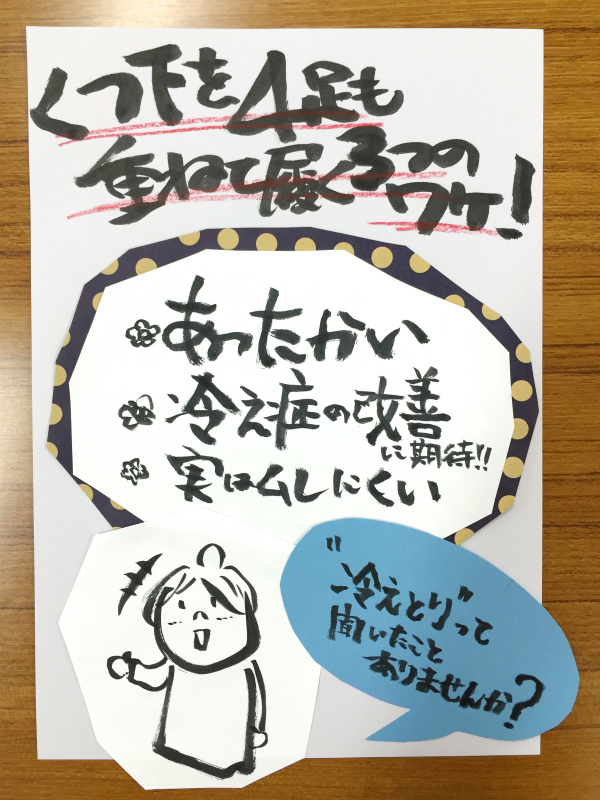 くつ下を4足も
重ねて履く3つの
ワケ!
あったかい
冷え症の改善
に期待!!
実はムレにくい
"冷えとり"って
聞いたこと
ありませんか?